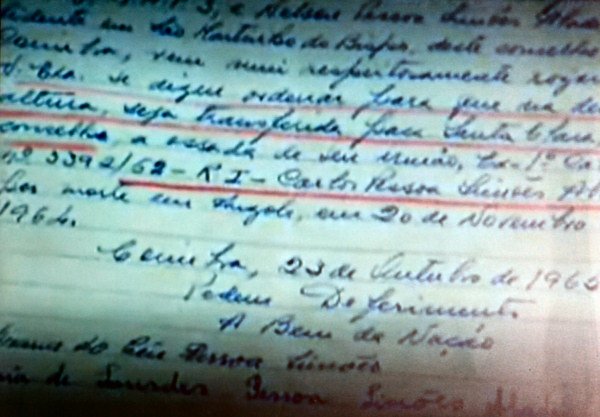 nº 3, e Nelson Pessoa Simões
sidente em São Martinho do Bispo, deste concelho
Coimbra, vem mui respeitosamente rogar
V. Exa. se digne ordenar para que na de
altura, seja transferida para Santa Clara,
concelho, a ossada de seu irmão, Ex-1º Ca
nº 3392/62 - R I - Carlos Pessoa Simões
por morte em Angola, em 20 de Novembro
1964.
Coimbra, 23 de Outubro de 196
Pedem Deferimento
A Bem da Nação
Pessoa Simões
de Lourdes Pessoa Simões